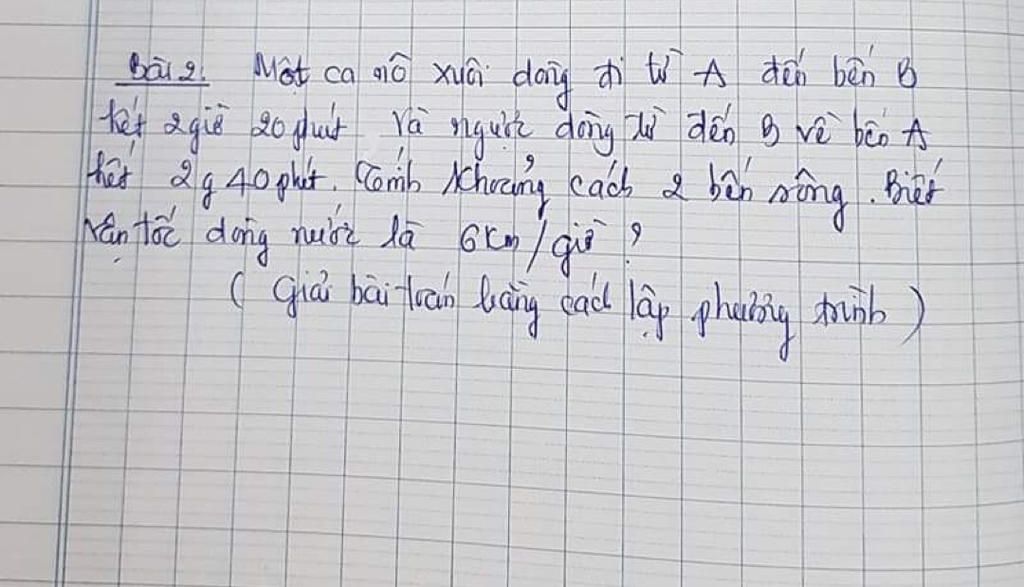 Bài 2. Một ca nô xuôi dòng đi từ A đến bến B
hết 2giờ 20phút và ngược dòng từ đến B về bến A
hết 2g 40phút. Tính khoảng cách 2 bến sông. Biết
vận tốc dòng nước là 6Km/giờ ?
( Giải bài toán bằng cách lập phương trình )